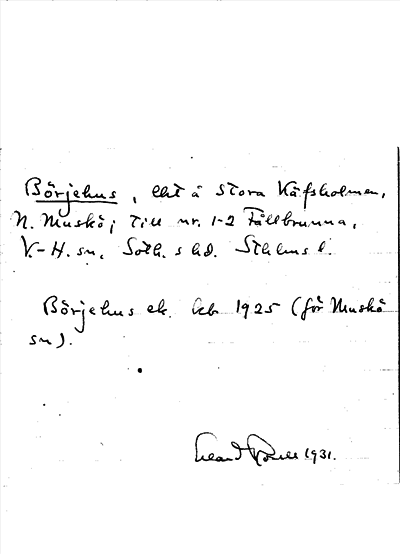 Börjehus, lht å Stora Käfsholmen,
N. Muskö; till nr. 1-2 Fållbrunna,
V.-H. sn, Soth.s hd. Sthlms l.
Börjehus ek. kb 1925 (för Muskö
sn).
1931.